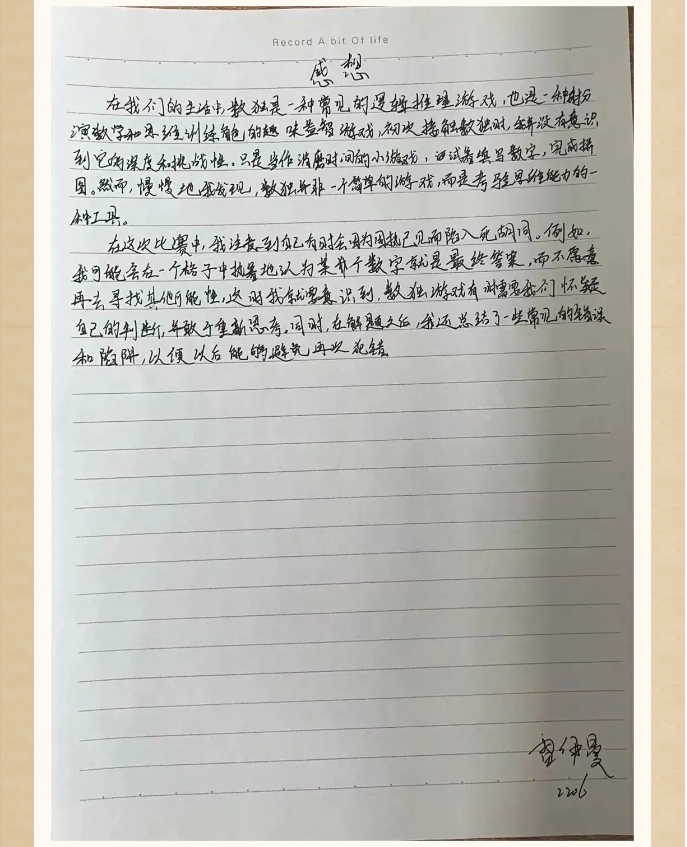 Record A bit Of life
感想
在我们的生活中,数独是一种常见的逻辑推理游戏,也是一种扮
演数学和思维训练角色的趣味益智游戏,初次接触数独时,我并没有意识
到它的深度和挑战性。只是当作消磨时间的小游戏,试着填写数字,完成拼
图。然而,慢慢地我发现,数独并非一个简单的游戏,而是考验思维能力的一
种工具。
在这次比赛中,我注意到自己有时会因为固执己见而陷入死胡同。例如,
我可能会在一个格子中执着地认为某个数字就是最终答案,而不愿意
再去寻找其他可能性,这时我就意识到,数独游戏有时需要我们怀疑
自己的判断,并敢于重新思考。同时,在解题之后,我还总结了一些常见的错误
和陷阱,以便以后能够避免再次犯错
伊曼
2206